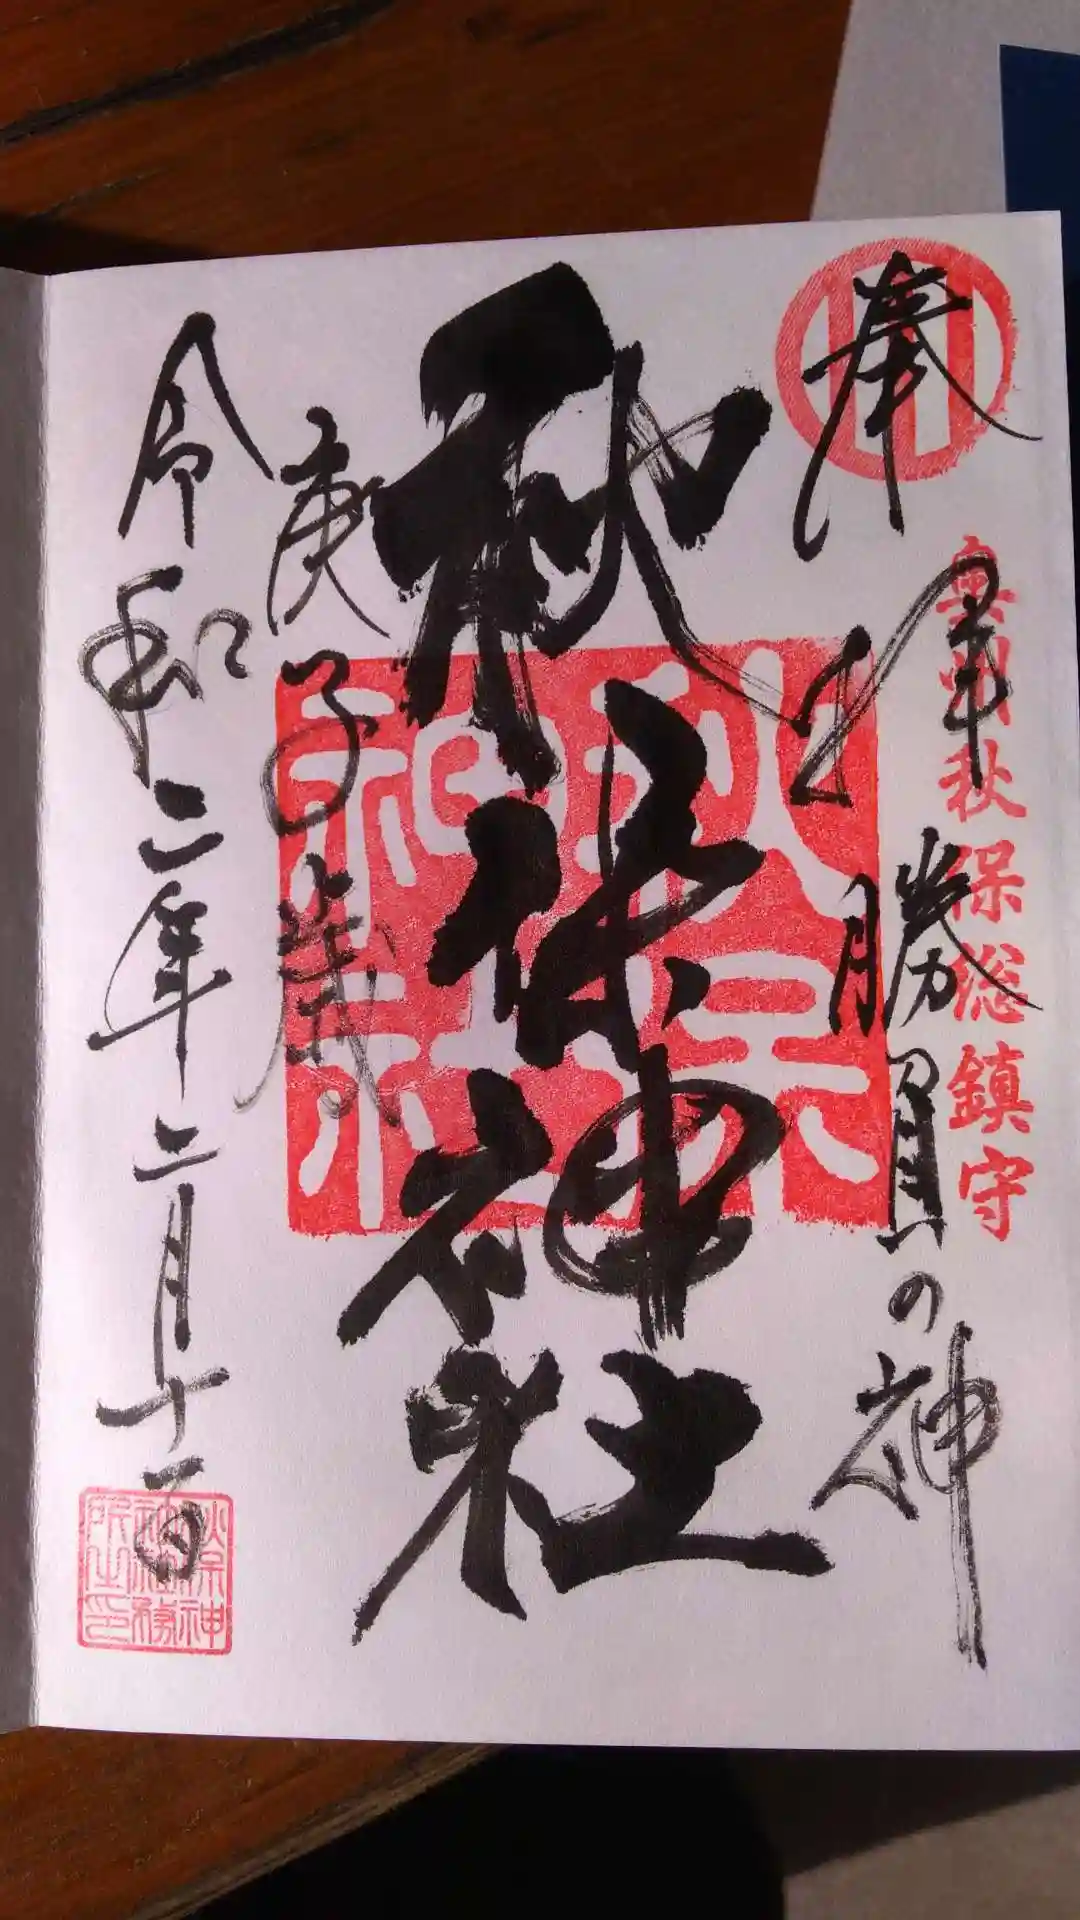 奉拝
奥州秋保総鎮守
勝負の神
秋保神社
秋保神社
庚子歳
令和二年二月十一日
秋保神
社社務
所之印